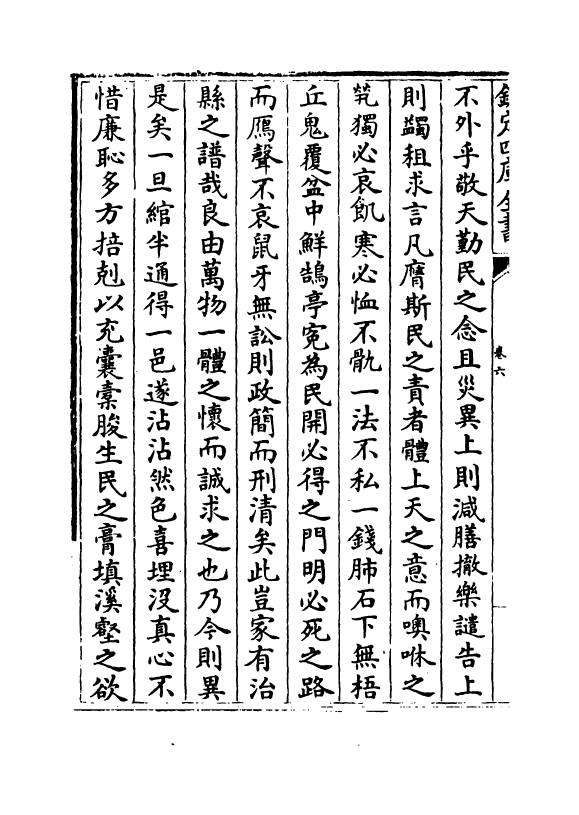 欽定四庫全書
卷六
不外乎敬天勤民之念且災異上則減膳撤樂譴告上
則蠲租求言凡膺斯民之責者體上天之意而噢咻之
茕獨必哀飢寒必恤不骫一法不私一錢肺石下無梧
丘鬼覆盆中鮮鵠亭寃為民開必得之門明必死之路
而鴈聲不哀鼠牙無訟則政簡而刑清矣此豈家有治
縣之譜哉良由萬物一體之懷而誠求之也乃今則異
是矣一旦綰半通得一邑遂沾沾然色喜埋没真心不
惜廉恥多方掊剋以充囊橐朘生民之膏填溪壑之欲